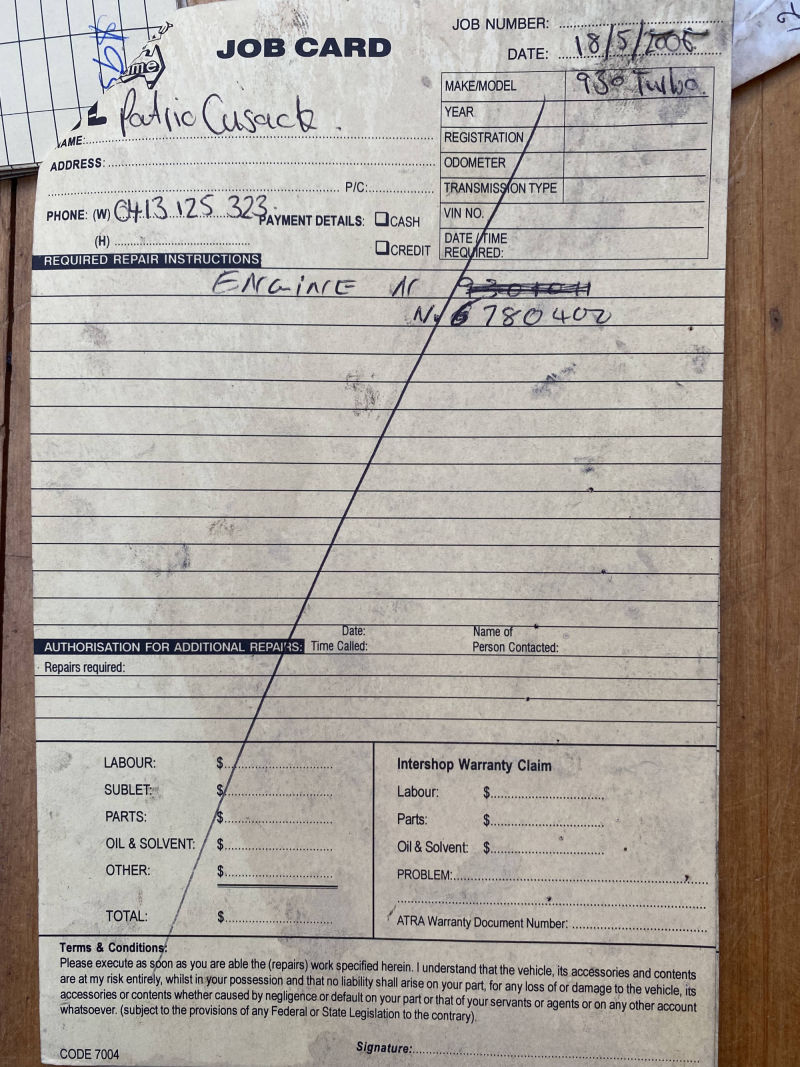 me
JOB CARD
JOB NUMBER:
DATE: 18/5/2006
MAKE/MODEL 930 Turbo.
YEAR
REGISTRATION
ODOMETER
TRANSMISSION TYPE
VIN NO.
DATE / TIME
REQUIRED:
AME: Patric Cusack.
ADDRESS:
P/C:
PHONE: (W) 0413 125 323
PAYMENT DETAILS: CASH
(H)
CREDIT
REQUIRED REPAIR INSTRUCTIONS
ENGINE Nr
Nr 6780402
Date:
Name of
AUTHORISATION FOR ADDITIONAL REPAIRS: Time Called:
Person Contacted:
Repairs required:
LABOUR: $
SUBLET: $
PARTS: $
OIL & SOLVENT: $
OTHER: $
TOTAL: $
Intershop Warranty Claim
Labour: $
Parts: $
Oil & Solvent: $
PROBLEM:
ATRA Warranty Document Number:
Terms & Conditions:
Please execute as soon as you are able the (repairs) work specified herein. I understand that the vehicle, its accessories and contents
are at my risk entirely, whilst in your possession and that no liability shall arise on your part, for any loss of or damage to the vehicle, its
accessories or contents whether caused by negligence or default on your part or that of your servants or agents or on any other account
whatsoever. (subject to the provisions of any Federal or State Legislation to the contrary).
CODE 7004
Signature: